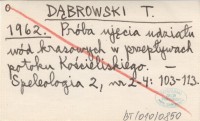 DĄBROWSKI T.
1962. Próba ujęcia udziału
wód krasowych w przepływach
potoku Kościeliskiego. —
Speleologia 2, nr 2-4: 103-113.
bt/01010150